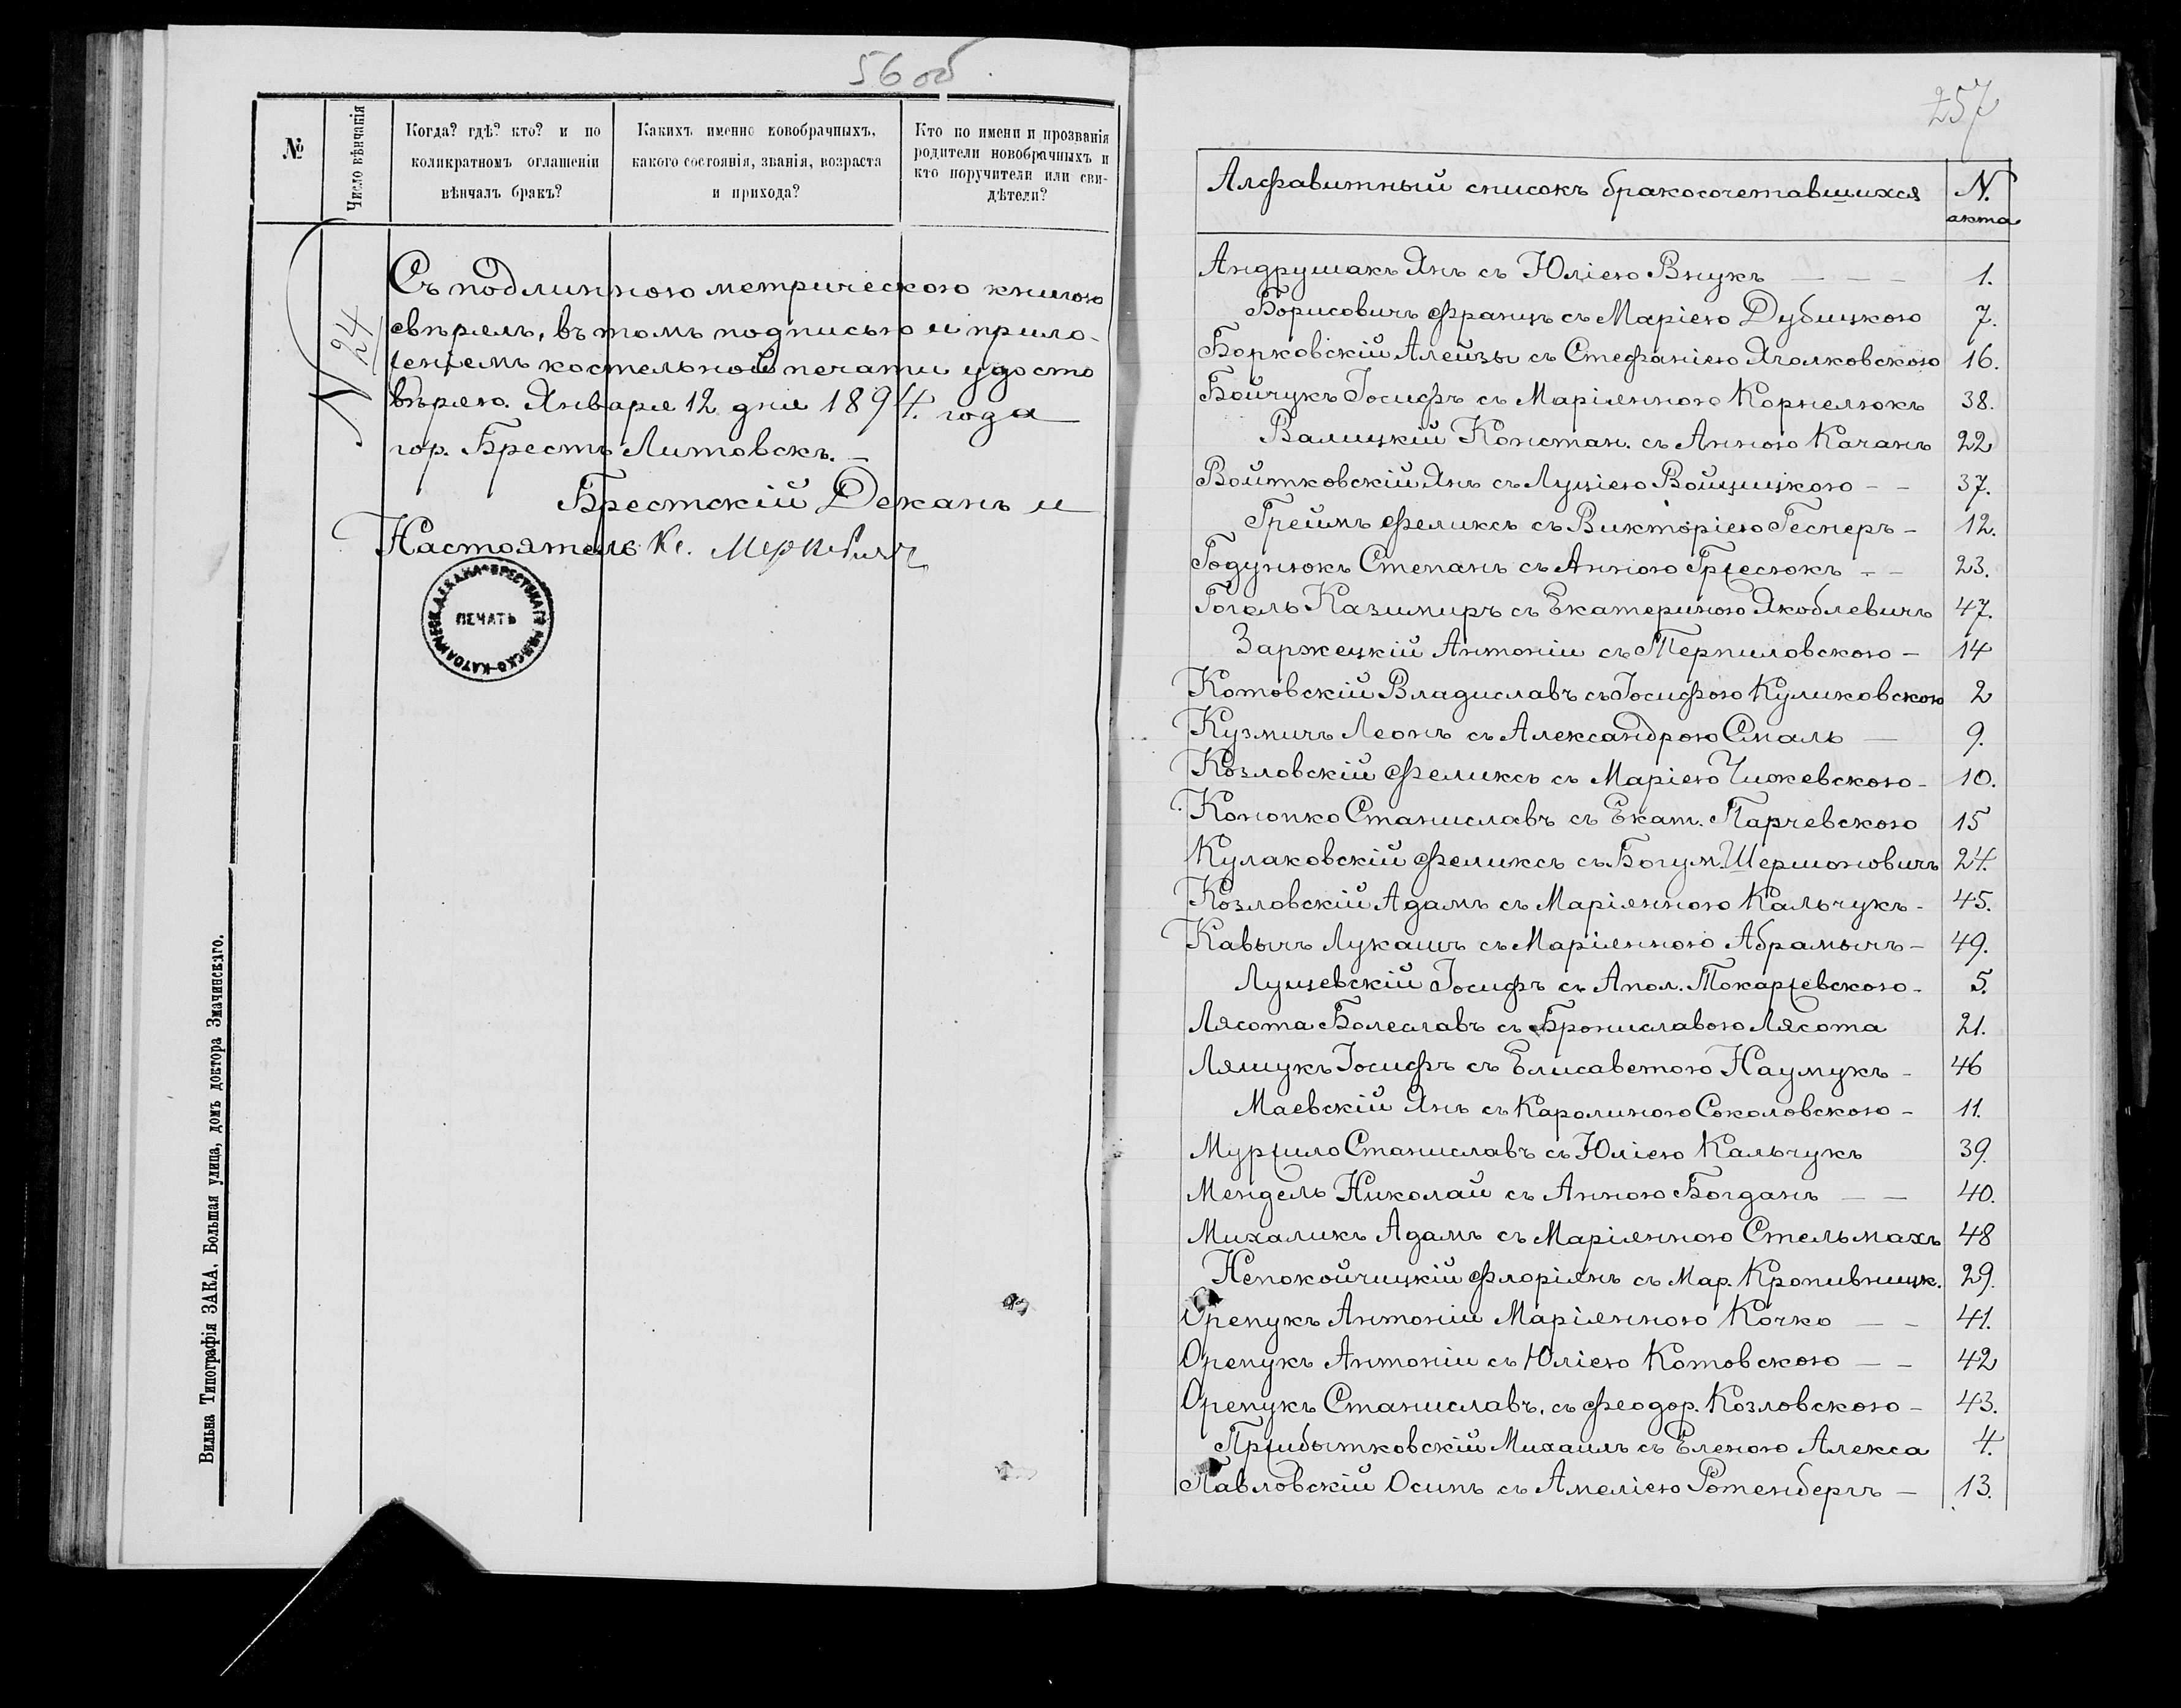 56 об.
№
Число вѣнчанія
Когда? гдѣ? кто? и по
коликратномъ оглашеніи
вѣнчалъ бракъ?
Какихъ именно новобрачныхъ,
какого состоянія, званія, возраста
и прихода?
Кто по имени и прозванія
родители новобрачныхъ и
кто поручители или сви-
дѣтели?
N 24
Съ подлинною метрическою книгою
свѣрялъ, въ томъ подписью и прило-
женіемъ костельной печати удосто
вѣряю. Января 12 дня 1894. года
гор. Брестъ Литовскъ. —
Брестскій Деканъ и
Настоятель Кс.
ПЕЧАТЬ
Вильна Типографія ЗАКА, Большая улица, домъ доктора Змачинскаго.
257
Алфавитный списокъ бракосочетавшихся N. акта
Андрушакъ Янъ съ Юліею Внукъ — — — 1.
Борисовичъ Францъ съ Маріею Дубицкою 7.
Борковскій Алейзы съ Стефаніею Яголковскою 16.
Бойчукъ Іосифъ съ Маріянною Корнелюкъ 38.
Валицкій Констан. съ Анною Качанъ 22
Войтковскій Янъ съ Луціею Войцицкою — — 37.
Греймъ Феликсъ съ Викторіею Геснеръ — 12.
Годунюкъ Степанъ съ Анною Гржесюкъ — — 23.
Гоголь Казимиръ съ Екатериною Якоблевичъ 47.
Заржецкій Антоній съ Терпиловскою — 14
Котовскій Владиславъ съ Іосифою Куликовскою 2
Кузмичъ Леонъ съ Александрою Смаль — 9.
Козловскій Феликсъ съ Маріею Чижевскою — 10.
Конопко Станиславъ съ Екат. Парчевскою 15
Кулаковскій Феликсъ съ Богум. Шермоновичъ 24.
Козловскій Адамъ съ Маріянною Кальчукъ — 45.
Кавычъ Лукашъ съ Маріянною Абрамычъ — 49.
Лущевскій Іосифъ съ Апол. Токаржевскою — 5.
Лясота Болеславъ съ Брониславою Лясота 21.
Лящукъ Іосифъ съ Елисаветою Наумукъ — 46
Маевскій Янъ съ Каролиною Соколовскою — 11.
Муржило Станиславъ съ Юліею Кальчукъ 39.
Мендель Николай съ Анною Богданъ — — 40.
Михаликъ Адамъ съ Маріянною Стельмахъ 48
Непокойчицкій Флоріянъ съ Мар. Кропивницк. 29.
Орепукъ Антоній Маріянною Кочко — — 41.
Орепукъ Антоній съ Юліею Котовскою — — 42
Орепукъ Станиславъ, съ Феодор. Козловскою — 43.
Пржибытковскій Михаилъ съ Еленою Алекса 4.
Павловскій Осипъ съ Амеліею Ротенбергъ — 13.